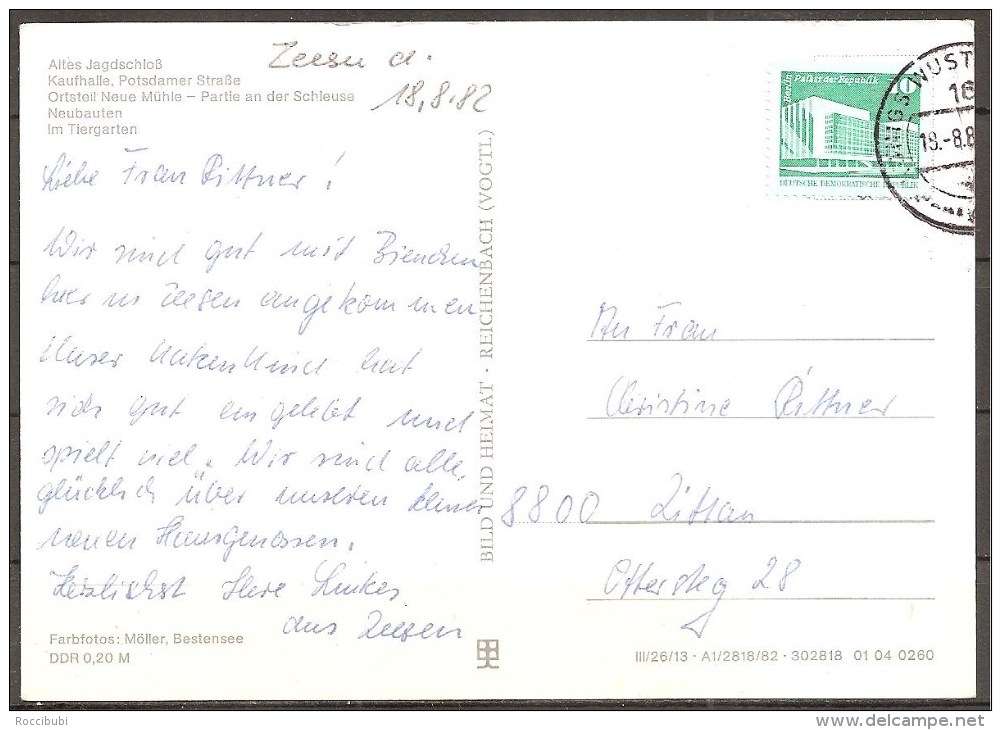 Altes Jagdschloß
Kaufhalle, Potsdamer Straße
Ortsteil Neue Mühle – Partie an der Schleuse
Neubauten
Im Tiergarten
Zeesen d.
18.8.82
Liebe Frau Rittner!
Wir sind gut mit Bienchen
hier in Zeesen angekommen
Unser Katzenkind hat
sich gut eingelebt und
spielt viel. Wir sind alle
glücklich über unseren kleinen
neuen Hausgenossen.
Herzlichst Ihre
aus Zeesen
Farbfotos: Möller, Bestensee
DDR 0,20 M
BILD UND HEIMAT · REICHENBACH (VOGTL)
Berlin, Palast der Republik
10
DEUTSCHE DEMOKRATISCHE REPUBLIK
NIGS WUST
16
19.-8.8
An Frau
Christine Rittner
8800 Zittau
Ottersteg 28
III/26/13 · A1/2818/82 · 302818 01 04 0260
Roccibubi
delcampe.net